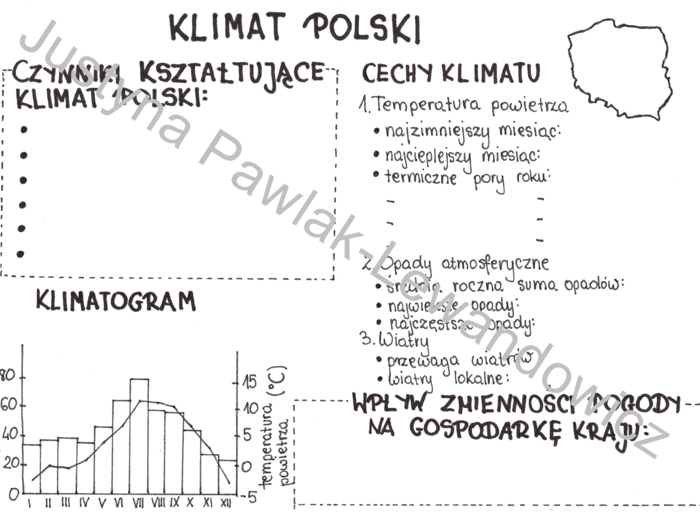 KLIMAT POLSKI
CZYNNIKI KSZTAŁTUJĄCE
KLIMAT POLSKI:
CECHY KLIMATU
1. Temperatura powietrza
• najzimniejszy miesiąc:
• najcieplejszy miesiąc:
• termiczne pory roku:
- -
- -
- -
2. Opady atmosferyczne
• średnia roczna suma opadów:
• największe opady:
• najczęstsze opady:
3. Wiatry
• przewaga wiatrów
• wiatry lokalne:
KLIMATOGRAM
80
60
40
20
0
15
10
5
0
-5
temperatura (°C)
powietrza
I II III IV V VI VII VIII IX X XI XII
WPŁYW ZMIENNOŚCI POGODY
NA GOSPODARKĘ KRAJU:
Justyna Pawlak-Lewandowicz